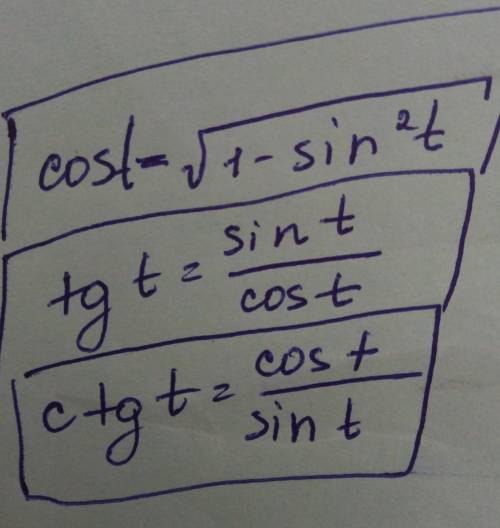 cost = √1 - sin²t
tg t = sin t / cos t
ctg t = cos t / sin t